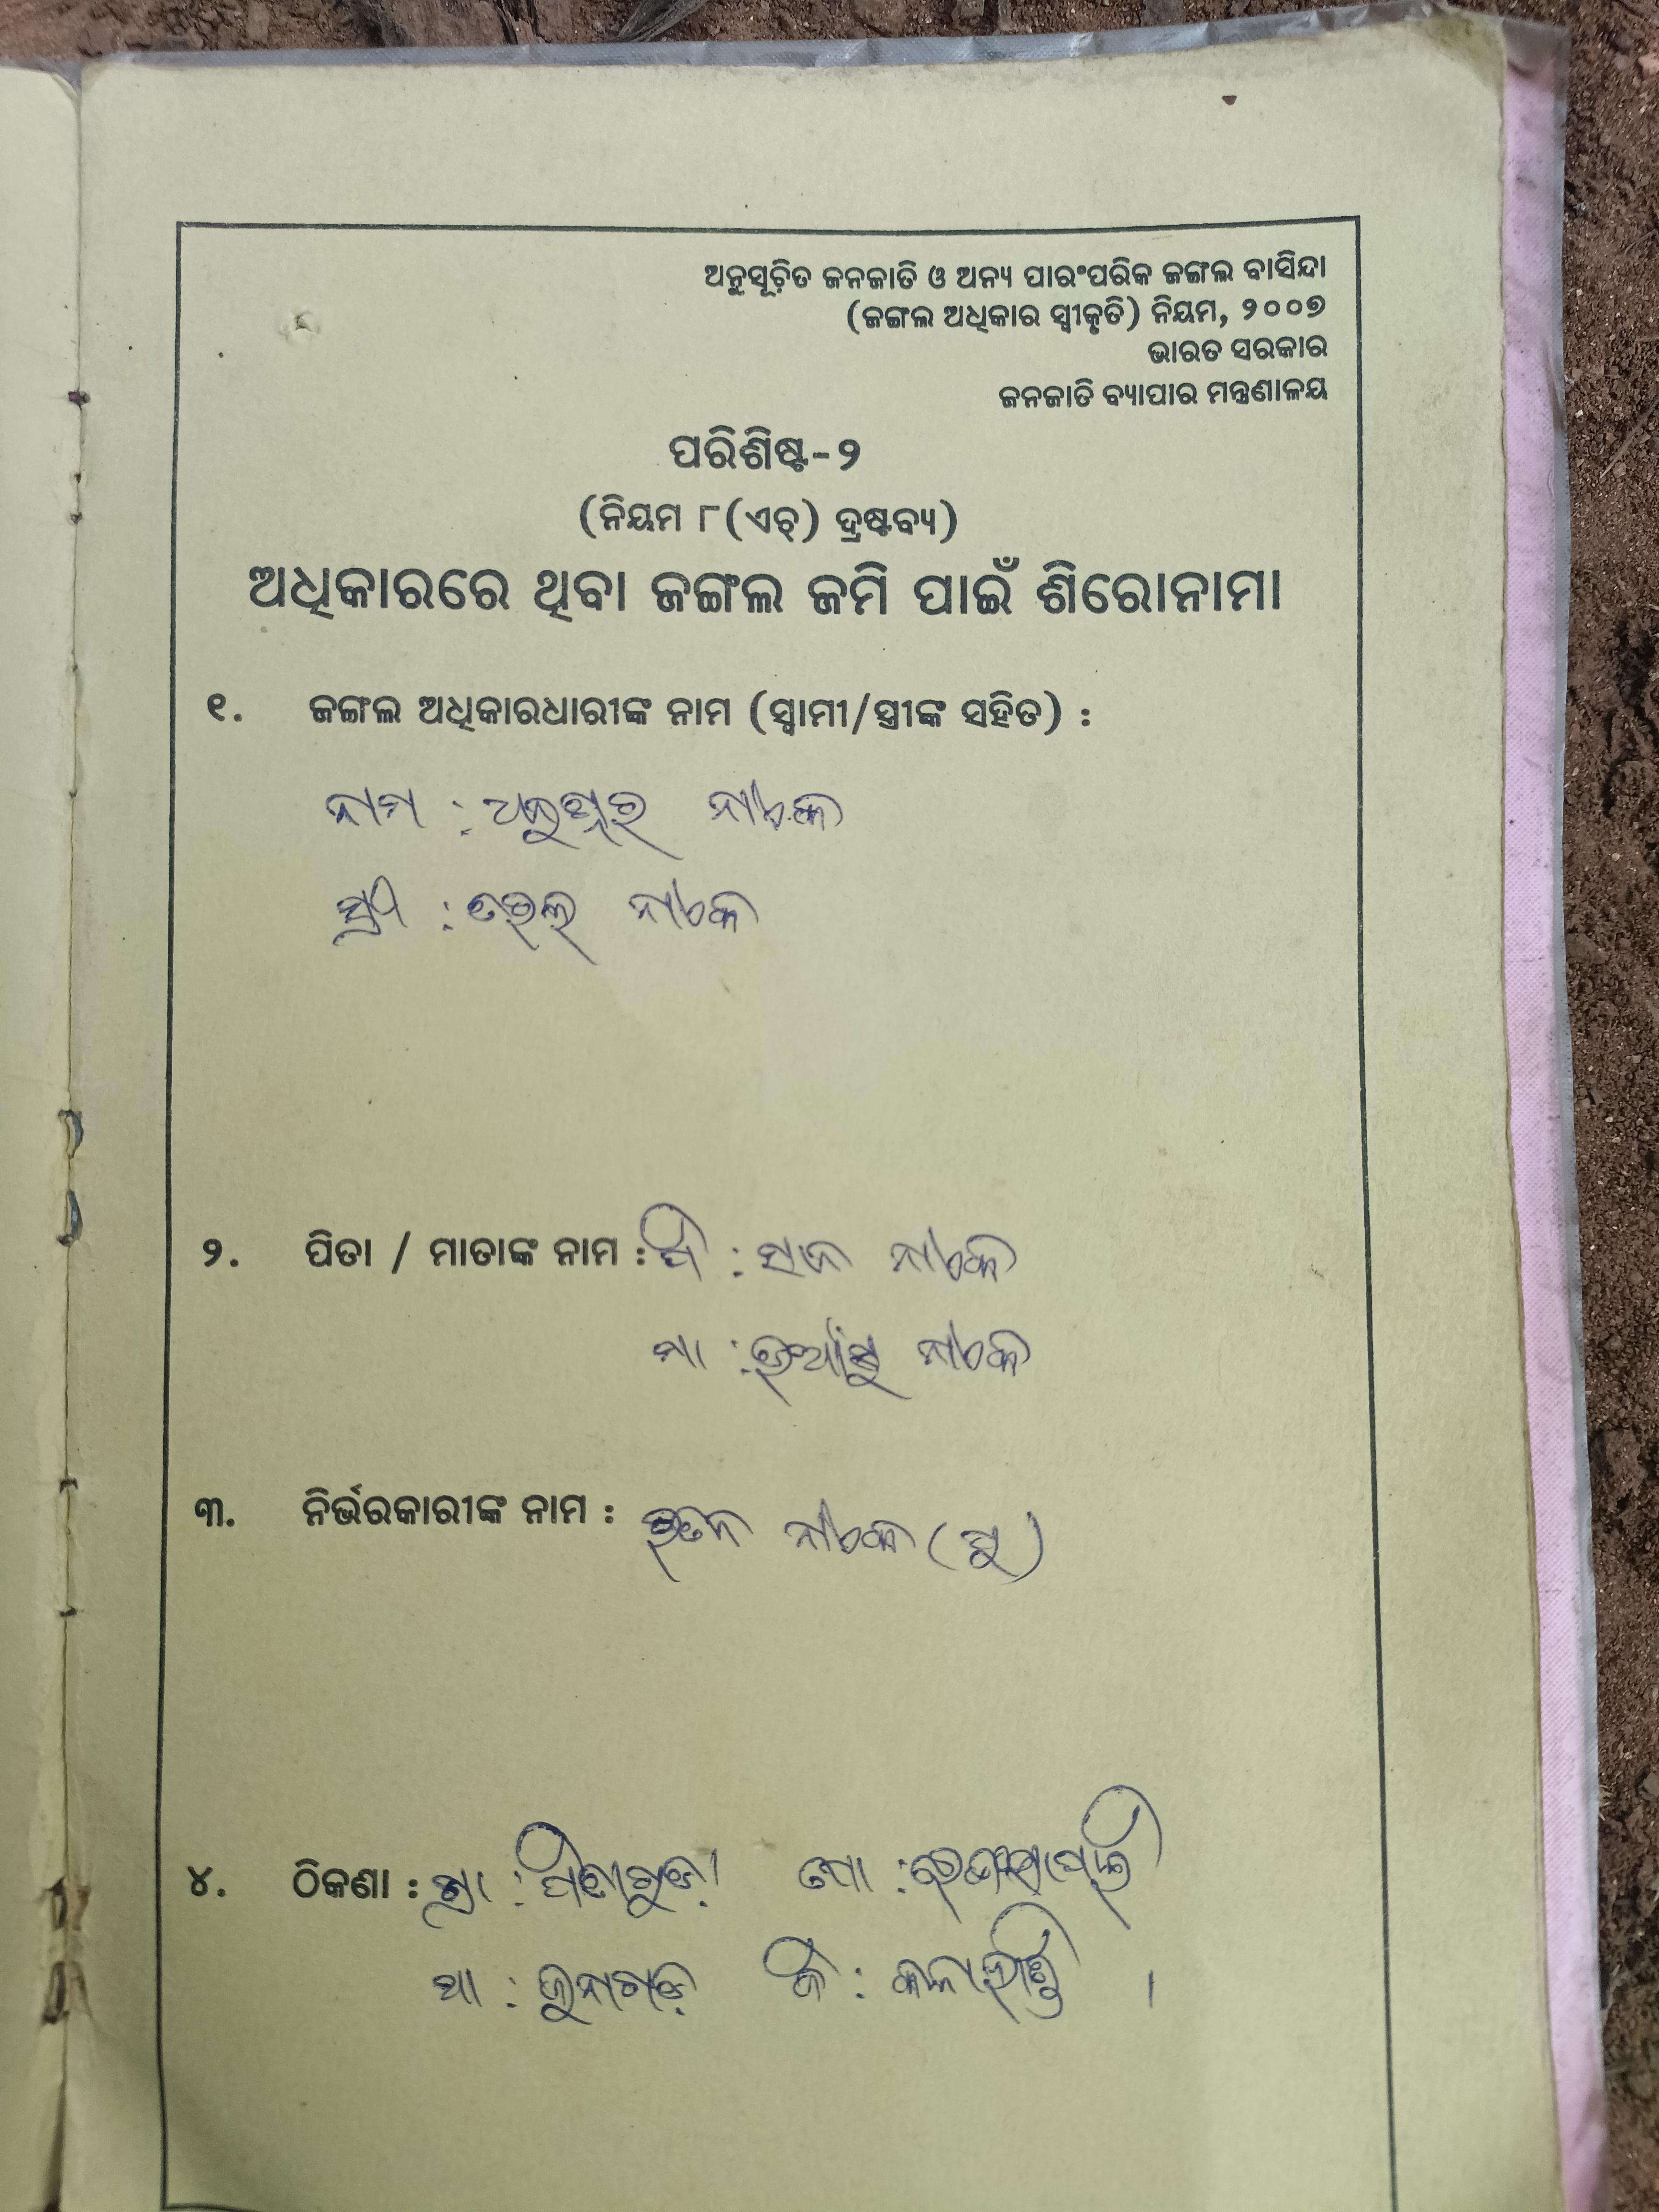 ଅନୁସୂଚିତ ଜନଜାତି ଓ ଅନ୍ୟ ପାରଂପରିକ ଜଙ୍ଗଲ ବାସିନ୍ଦା
(ଜଙ୍ଗଲ ଅଧିକାର ସ୍ୱୀକୃତି) ନିୟମ, ୨୦୦୭
ଭାରତ ସରକାର
ଜନଜାତି ବ୍ୟାପାର ମନ୍ତ୍ରଣାଳୟ
ପରିଶିଷ୍ଟ-୨
(ନିୟମ ୮(ଏଚ୍) ଦ୍ରଷ୍ଟବ୍ୟ)
ଅଧିକାରରେ ଥିବା ଜଙ୍ଗଲ ଜମି ପାଇଁ ଶିରୋନାମା
୧. ଜଙ୍ଗଲ ଅଧିକାରଧାରୀଙ୍କ ନାମ (ସ୍ୱାମୀ/ସ୍ତ୍ରୀଙ୍କ ସହିତ) :
ନାମ : ନାଏକ
ସ୍ତ୍ରୀ : ନାଏକ
୨. ପିତା / ମାତାଙ୍କ ନାମ : ପି : ନାଏକ
ମା : ନାଏକ
୩. ନିର୍ଭରକାରୀଙ୍କ ନାମ : ନାଏକ (ପୁ)
୪. ଠିକଣା : ଗ୍ରା : ପୋ :
ଥା : ଜୁନାଗଡ଼ ଜି : କଳାହାଣ୍ଡି ।